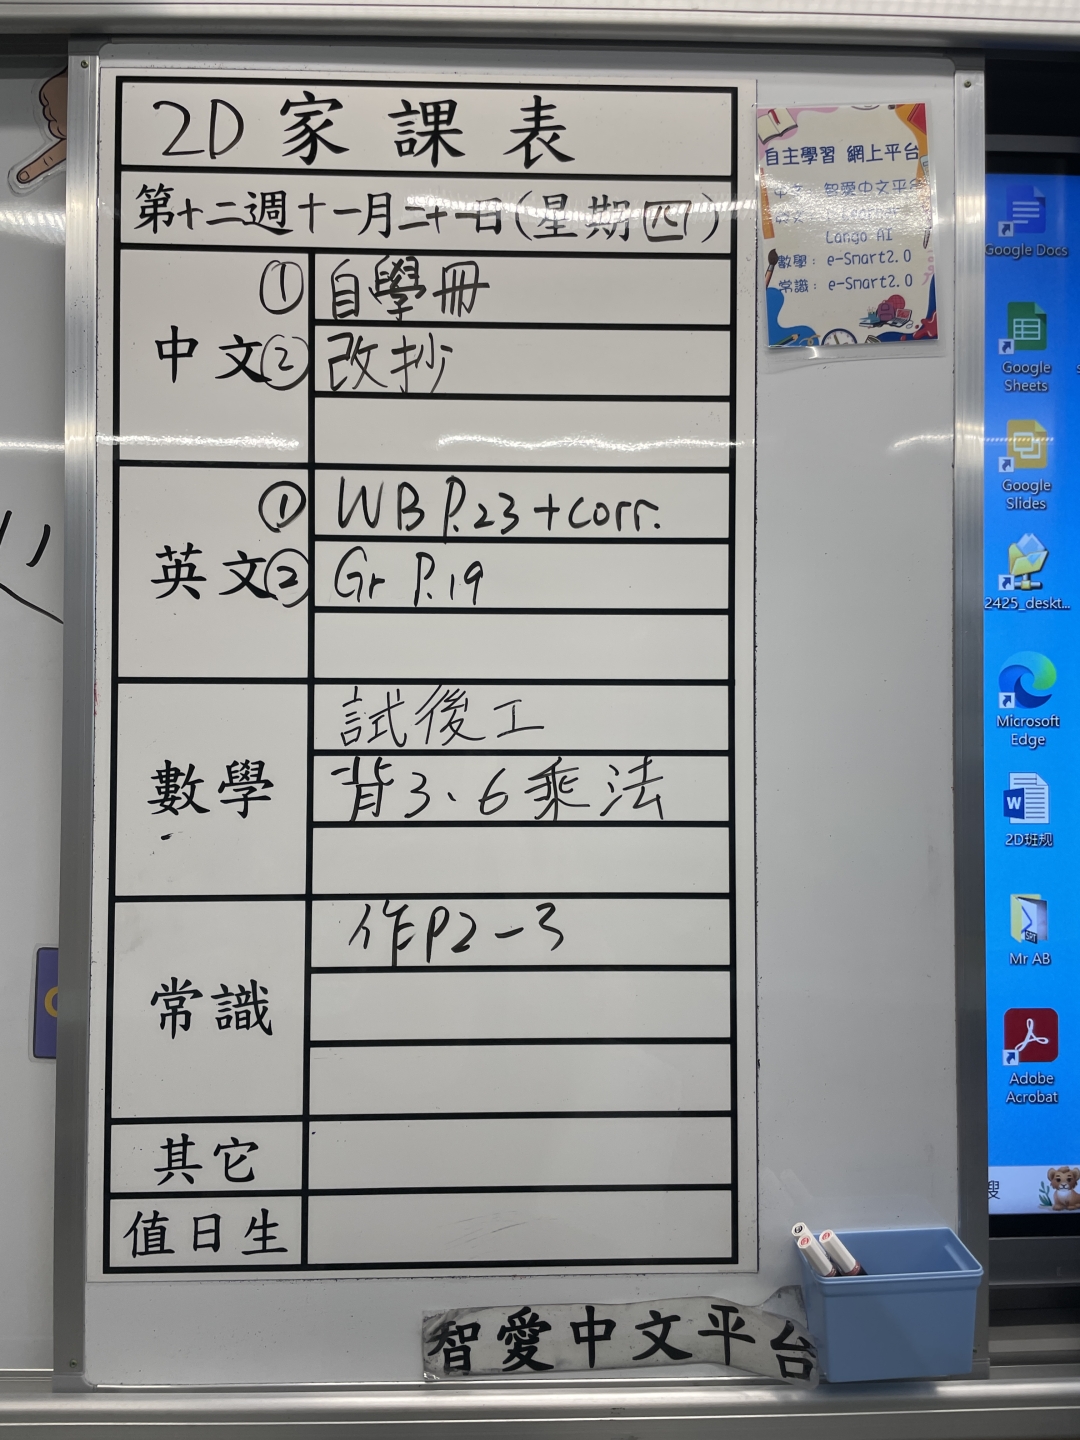 2D 家課表
第十二週十一月二十一日(星期四)
中文
① 自學冊
② 改抄
英文
① WB P.23 + corr.
② Gr P.19
數學
試後工
背3、6乘法
常識
作P2-3
其它
值日生
智愛中文平台
自主學習 網上平台
中文: 智愛中文平台
英文:
Lango AI
數學: e-Smart2.0
常識: e-Smart2.0
Google Docs
Google Sheets
Google Slides
2425_deskt...
Microsoft Edge
2D班规
Mr AB
Adobe Acrobat
搜